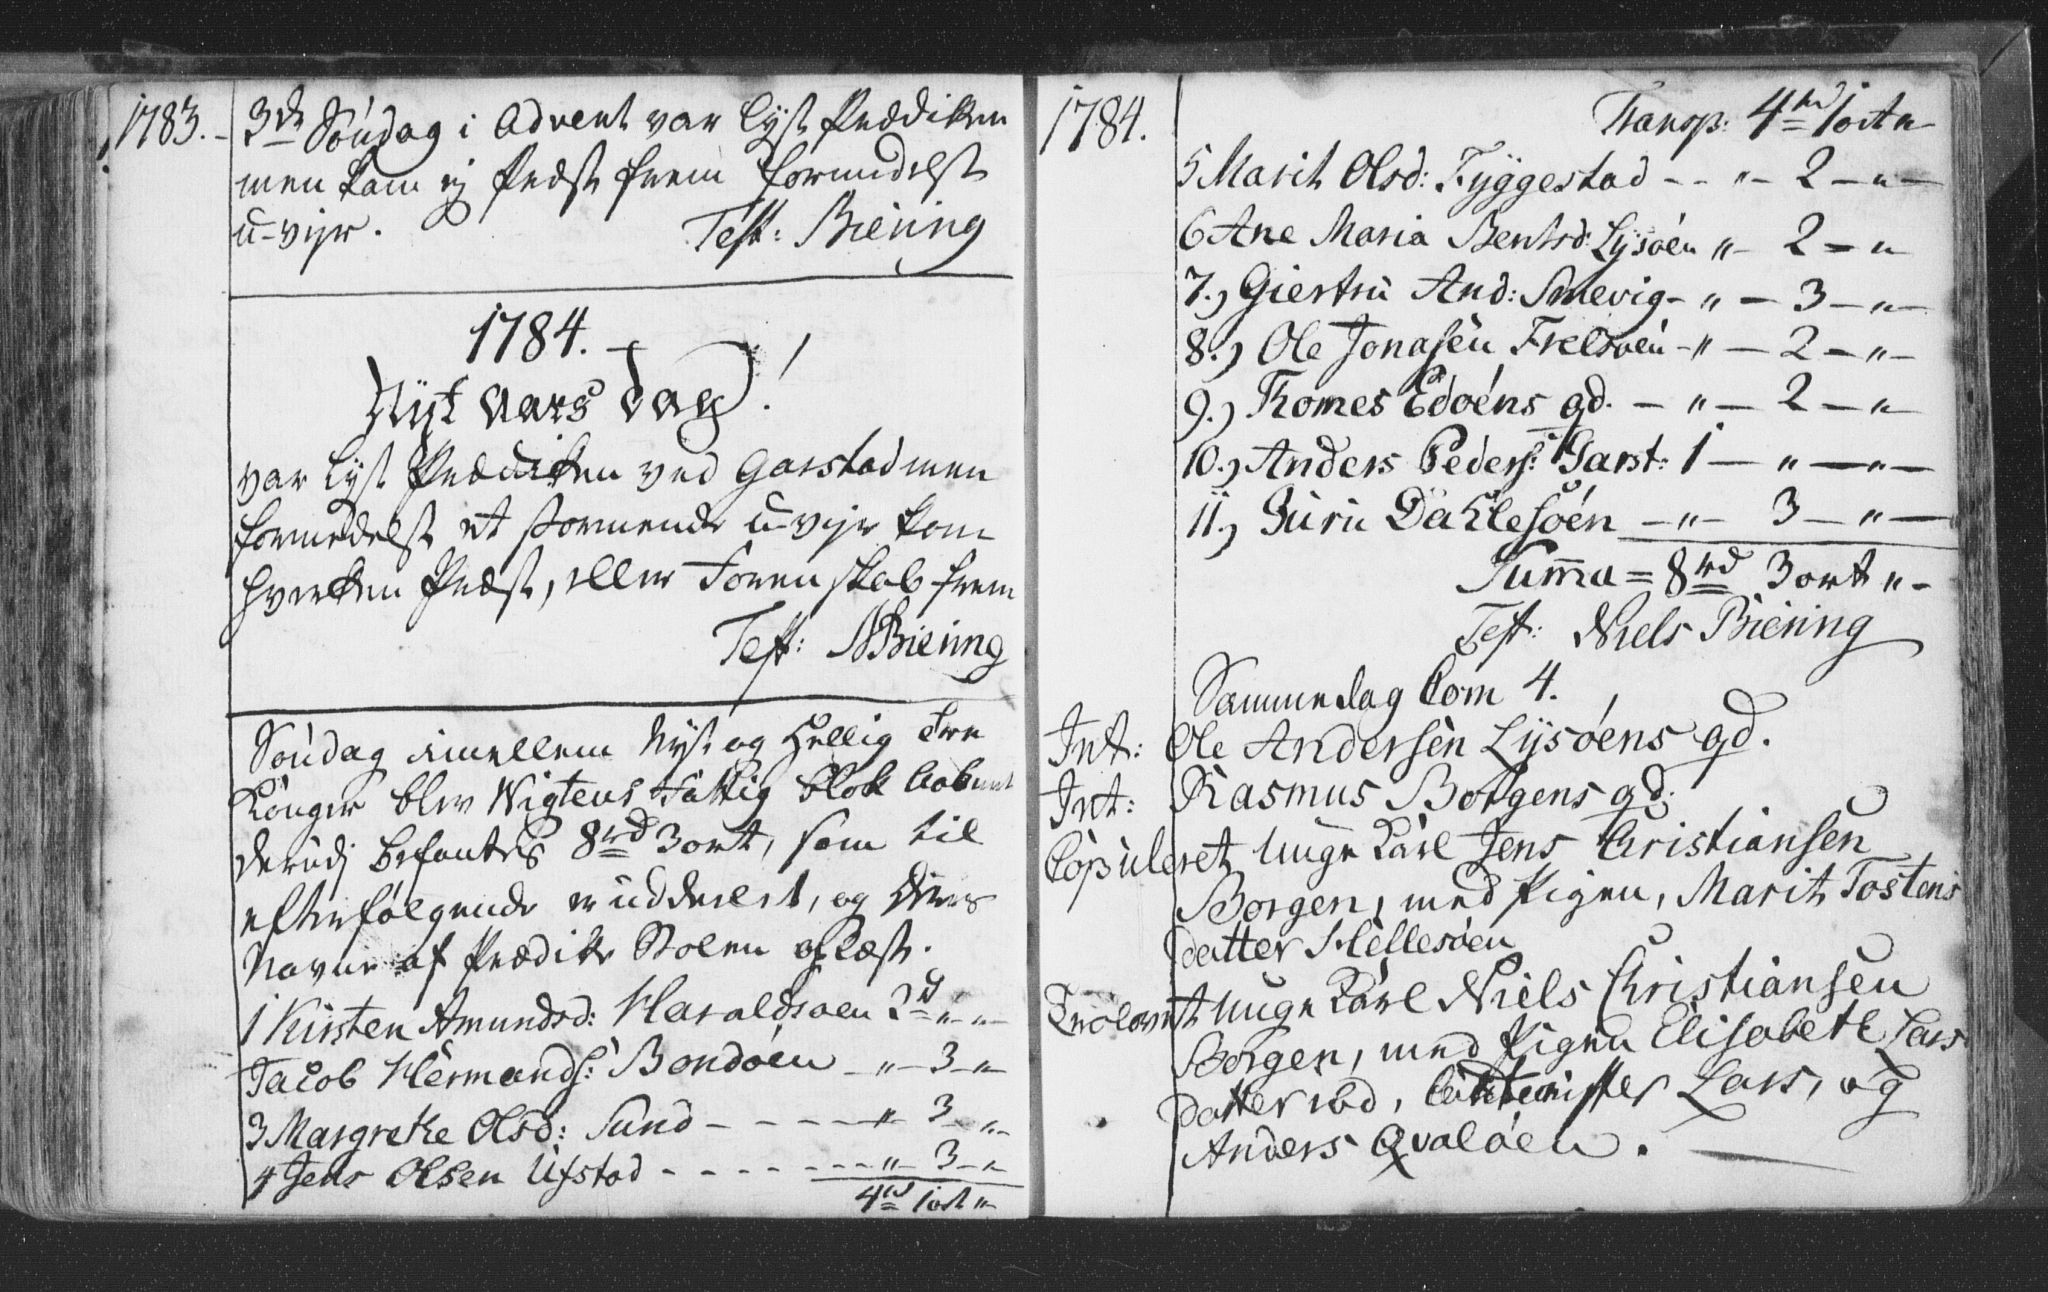 1783.
3de Søndag i Advent var lyst Prædiken
men kom ej Præst frem formedelst
u-vejr.
Test: Biering
1784.
Nyt aars dag!
var lyst Prædiken ved Garstad men
formedelst et stormende u-vejr kom
hverken Præst, eller Forenskab frem
Test: NBiering
Søndag imellem Nyt og Hellig Tre
Konger blev Wigtens Fattig blok aabnet
derudj befantes 8rd 3ort, som til
efterfølgende er uddeelt, og deres
Navne af Prædike Stolen oplæst.
1 Kirsten Amundsd: Haraldsøen 3d " "
Jacob Hermands: Bondøen - " - 3 - "
3 Margrete Olsd: Sund - - - - " 3 - "
4 Jens Olsen Ufstad - - - - - - - " - 3 - "
4rd 1ort "
1784.
Transp: 4rd 1ort "
5 Marit Olsd: Fyggestad - - " - 2 - " -
6 Ane Maria Bentsd: Lysøen " - 2 - "
7.) Giertru And: Smevig - " - 3 - " -
8.) Ole Jonasen Frelsøen - " - 2 - " -
9.) Thomes Edøens gd. - " - 2 - " -
10.) Anders Peders: Garst: 1 - " - " -
11.) Guru Dahlesøen - " - 3 - " -
Summa = 8rd 3ort " -
Test: Niels Biering
Sammedag Com 4.
Int: Ole Andersen Lysøens gd.
Int: Rasmus Borgens gd.
Copuleret unge Karl Jens Christiansen
Borgen, med Pigen, Marit Tostens
datter Hellesøen
Trolovet unge Karl Niels Christiansen
Borgen, med Pigen Elisabeth Lars
datter ibd, Lars, og
Anders Qvaløen.